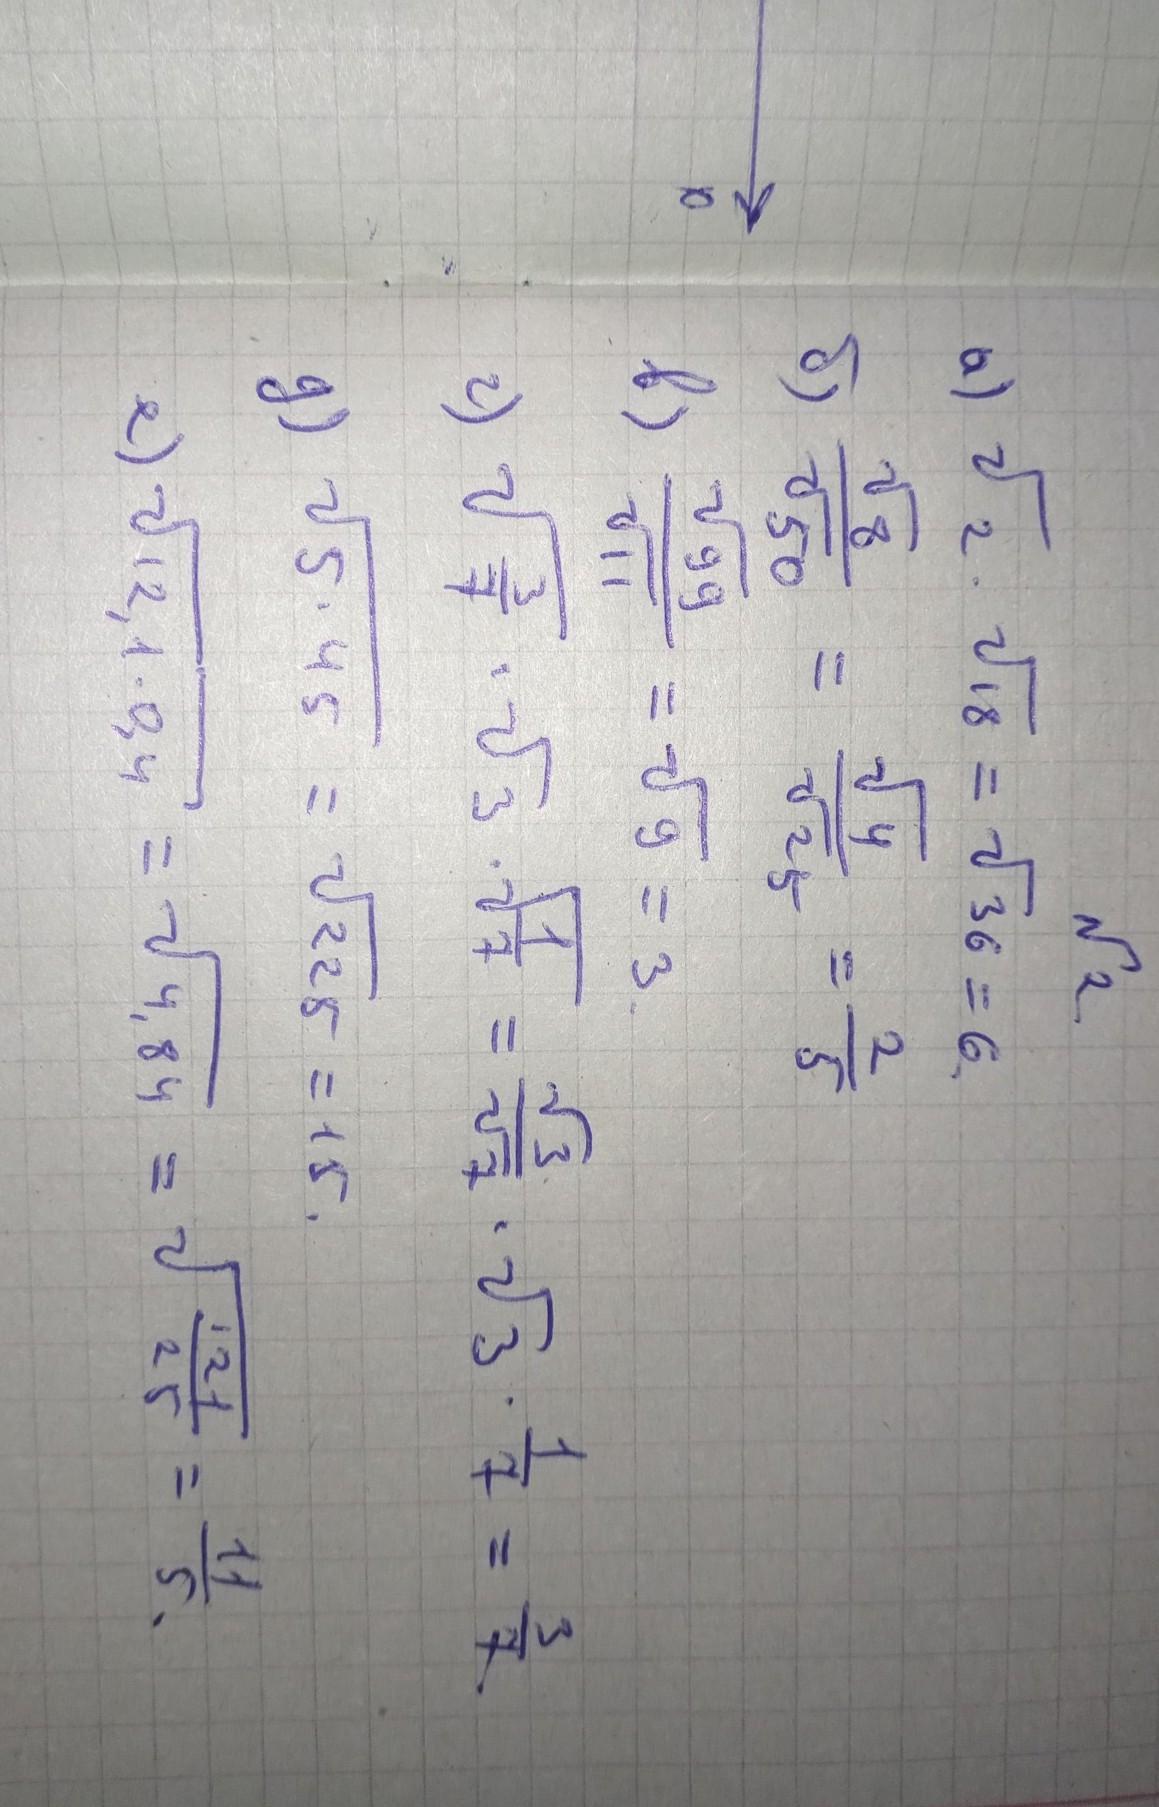 x
№2
а) √2 · √18 = √36 = 6.
б) √8/√50 = √4/√25 = 2/5
в) √99/√11 = √9 = 3.
г) √(3/7) · √3 · √(1/7) = √3/√7 · √3 · 1/7 = 3/7.
д) √(5·45) = √225 = 15.
е) √(12,1·0,4) = √4,84 = √(121/25) = 11/5.